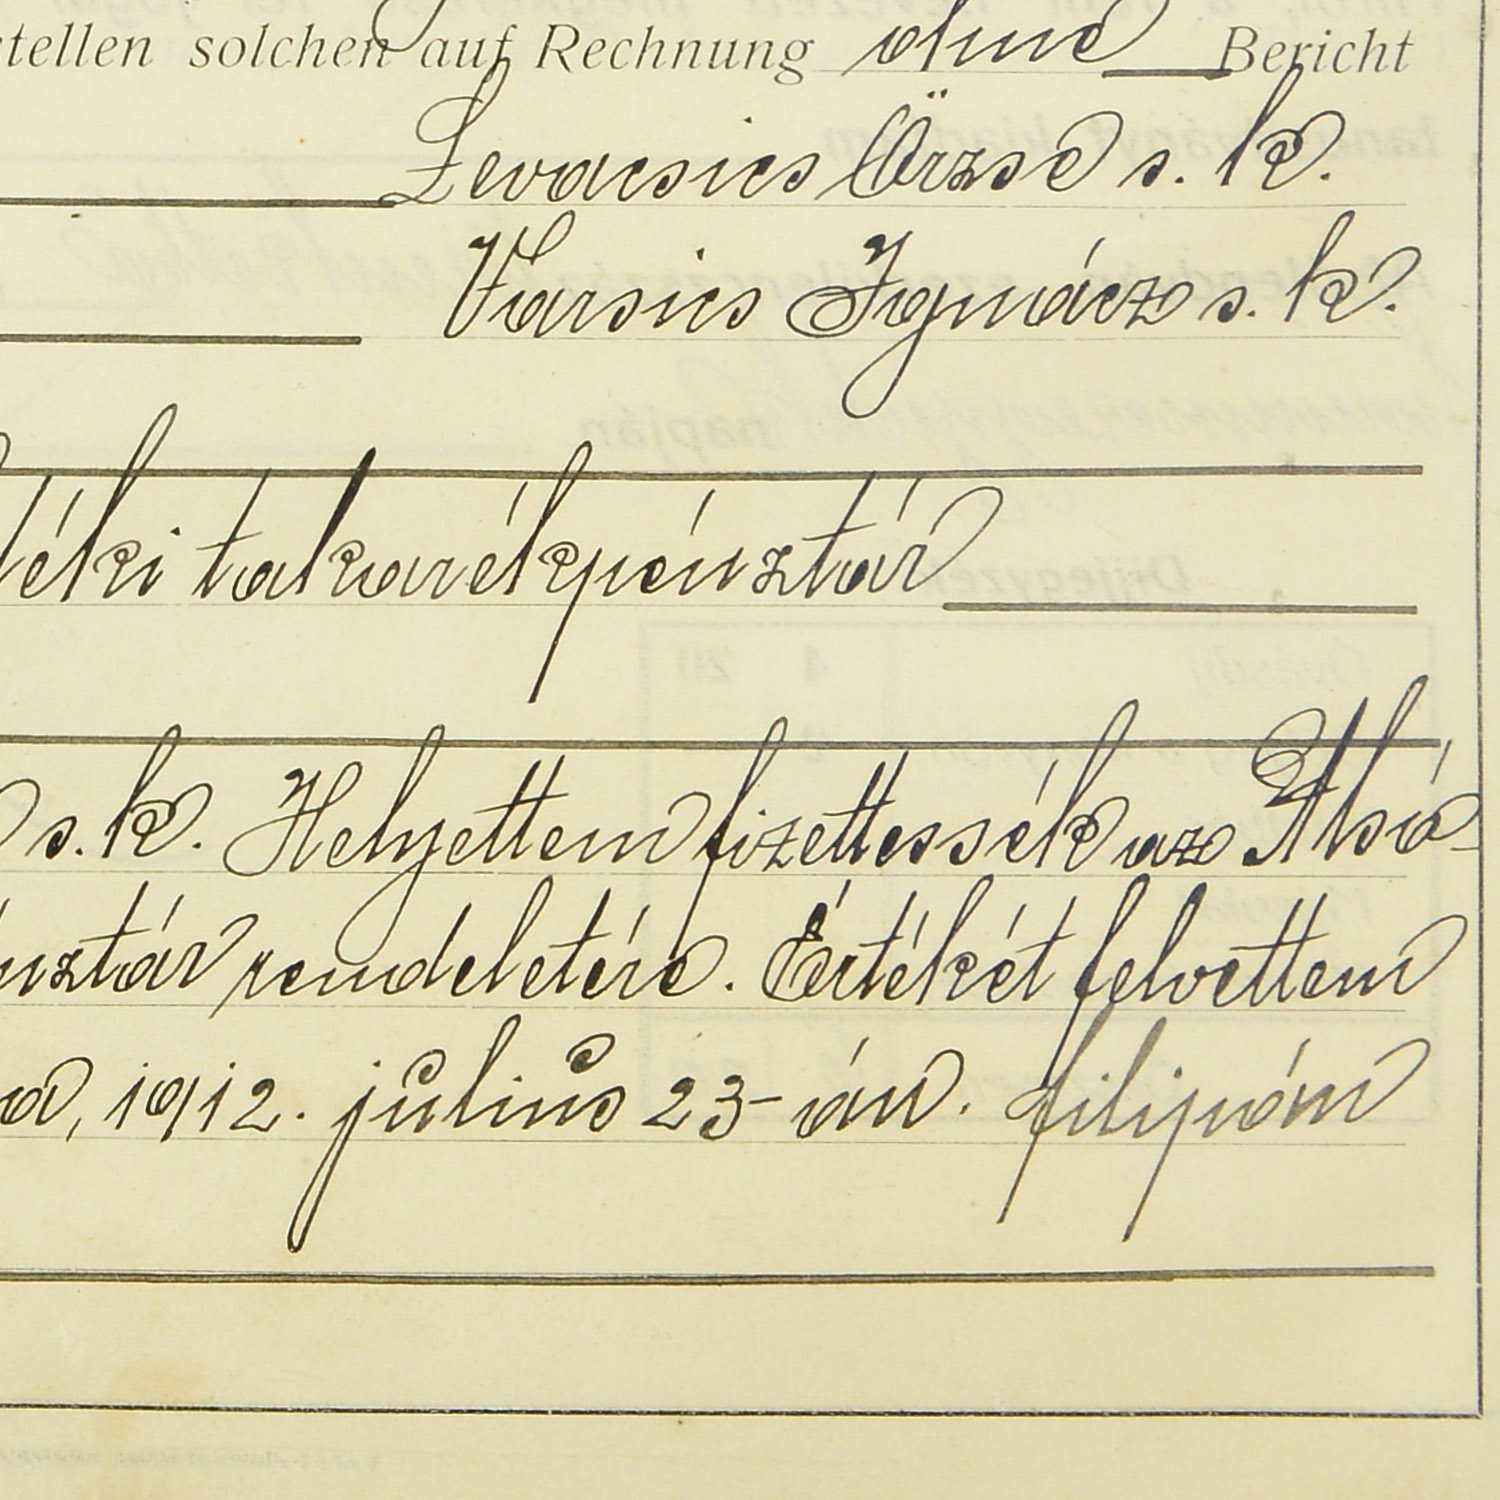 stellen solchen auf Rechnung ohne Bericht
Levacsics Örzse s. k.
Varsics Ignácz s. k.
déki takarékpénztár
s. k. Helyettem fizettessék az Alsó-
énztár rendeletére. Értékét felvettem
a, 1912. július 23-án. filipám